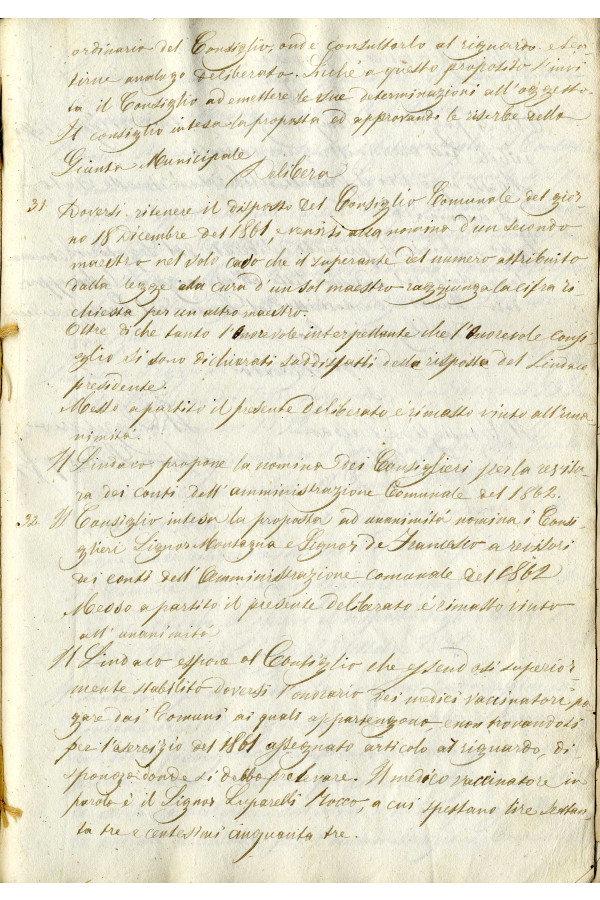 ordinario del Consiglio, onde consultarlo al riguardo e sen-
tirne analogo deliberato. Sicché a questo proposito s'invi-
ta il Consiglio ad emettere le sue determinazioni all'oggetto.
Il consiglio intesa la proposta ed approvando le riserbe della
Giunta Municipale
Delibera
31. Doversi ritenere il disposto del Consiglio Comunale del gior-
no 18 Dicembre del 1861, e venirsi alla nomina d'un secondo
maestro nel solo caso che il superante del numero attribuito
dalla legge alla cura d'un sol maestro raggiunga la cifra ri-
chiesta per un altro maestro.
Oltre di che tanto l'onorevole interpellante che l'Onorevole Consi-
glio si sono dichiarati saddisfatti della risposta del Sindaco
presidente.
Messo a partito il presente deliberato è rimasto vinto all'una-
nimità.
Il Sindaco propone la nomina dei Consiglieri per la revisto-
ra dei conti dell'amministrazione Comunale del 1862.
32. Il Consiglio intesa la proposta ad unanimità nomina i Consi-
glieri Signor Montagna e Signor de Francesco a revisori
dei conti dell'Amministrazione comunale del 1862
Messo a partito il presente deliberato è rimasto vinto
all'unanimità
Il Sindaco espone al Consiglio che essendosi superior-
mente stabilito doversi l'onorario dei medici vaccinatori pa-
gare dai Comuni ai quali appartengono, e non trovandosi
per l'esercizio del 1861 assegnato articolo al riguardo, di-
sponga donde si debba prelevare. Il medico vaccinatore in
parola è il Signor Luparelli Rocco, a cui spettano lire sessan-
ta tre e centesimi cinquanta tre.